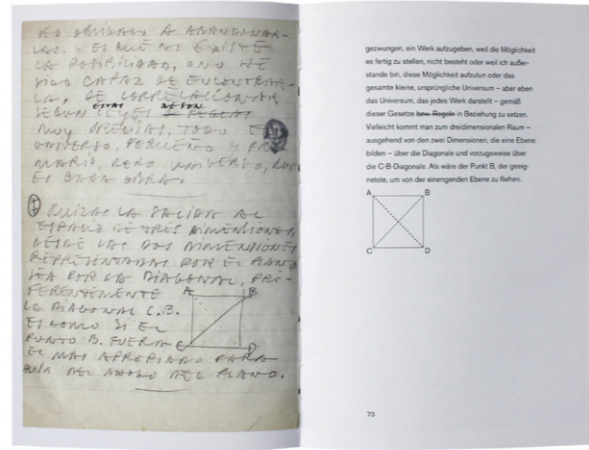 VEO OBLIGADO A ABANDONAR-
LAS, Y ES QUE NO EXISTE
LA POSIBILIDAD, O NO HE
SIDO CAPAZ DE ENCONTRAR-
LA, DE CORRELACIONAR
SEGUN LEYES REGLAS
MUY PRECISAS, TODO EL
UNIVERSO, PEQUEÑO Y PRI-
MARIO, PERO UNIVERSO, QUE
ES CADA OBRA.
QUIZAS LA SALIDA AL
ESPACIO DE TRES DIMENSIONES
DESDE LAS DOS DIMENSIONES
REPRESENTADAS POR EL PLANO
SEA POR LA DIAGONAL, PRE-
FERENTEMENTE
LA DIAGONAL C.B.
ES COMO SI EL
PUNTO B. FUERA
EL MAS APROPIADO PARA
HUIR DEL PLANO.
A B
C D
gezwungen, ein Werk aufzugeben, weil die Möglichkeit
es fertig zu stellen, nicht besteht oder weil ich außer-
stande bin, diese Möglichkeit aufzutun oder das
gesamte kleine, ursprüngliche Universum – aber eben
das Universum, das jedes Werk darstellt – gemäß
dieser Gesetze bzw. Regeln in Beziehung zu setzen.
Vielleicht kommt man zum dreidimensionalen Raum –
ausgehend von den zwei Dimensionen, die eine Ebene
bilden – über die Diagonale und vorzugsweise über
die C-B-Diagonale. Als wäre der Punkt B, der geeig-
netste, um von der einengenden Ebene zu fliehen.
A B
C D
73